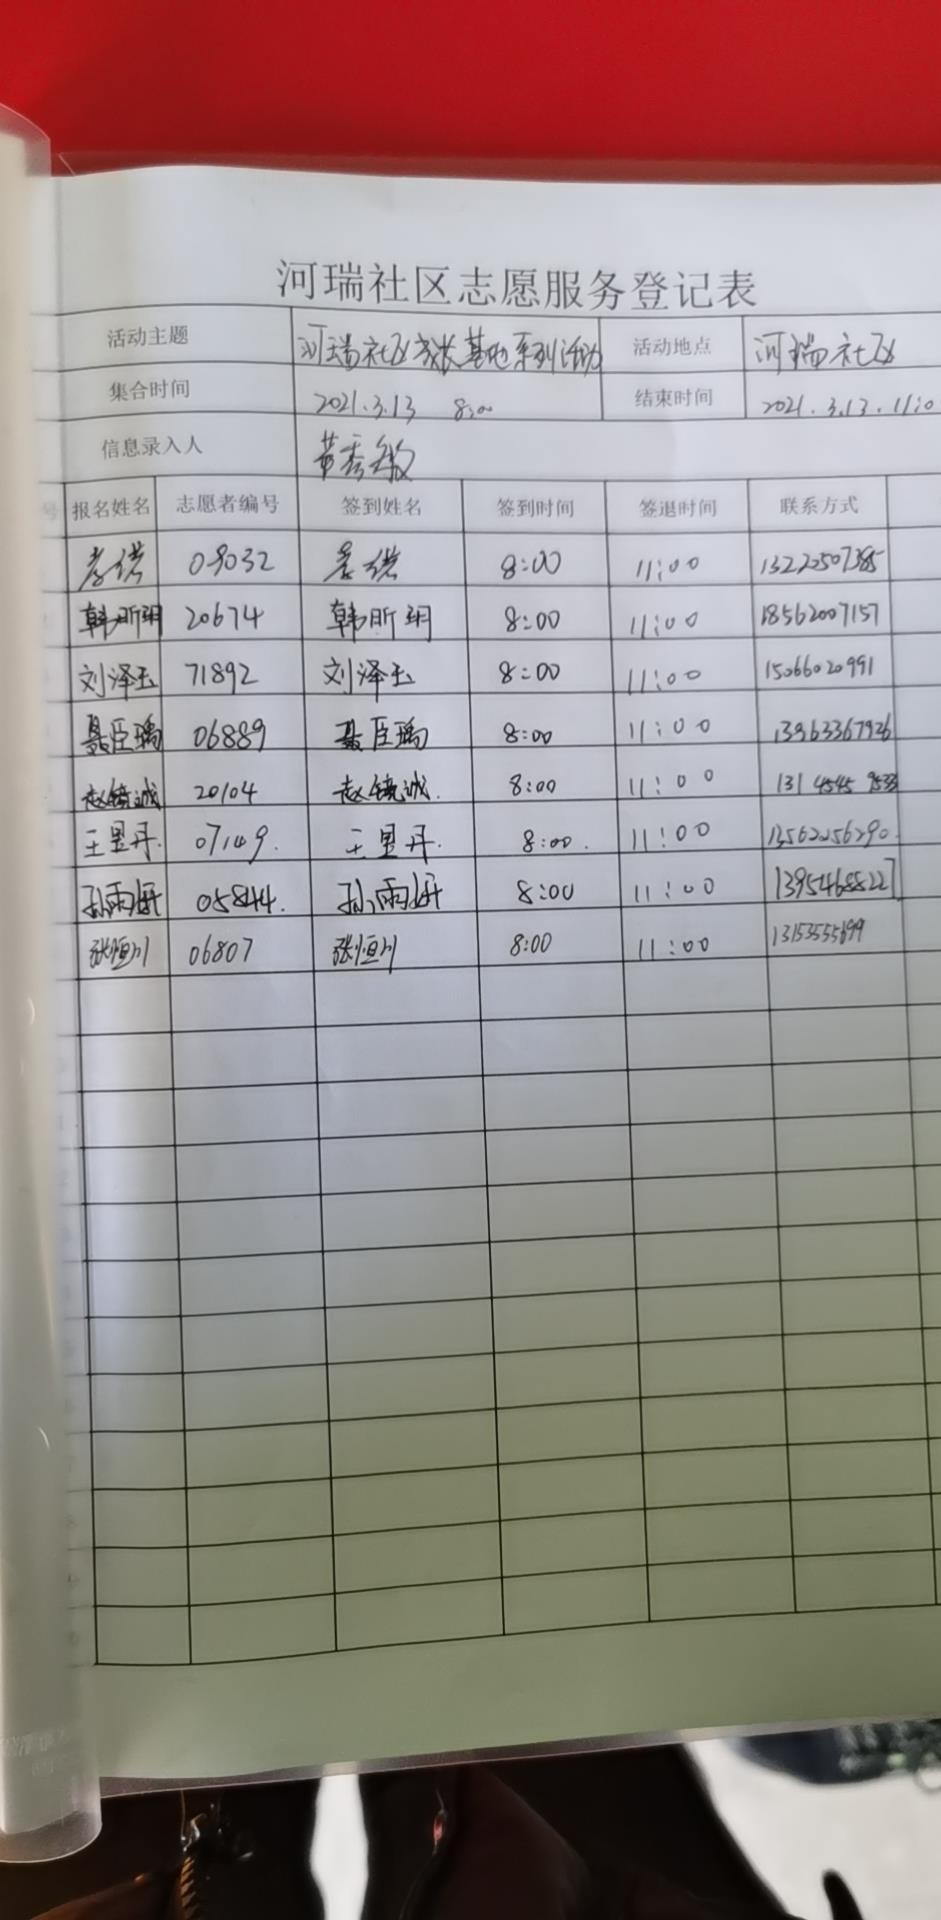 河瑞社区志愿服务登记表
活动主题 河瑞社区成长基地系列活动 活动地点 河瑞社区
集合时间 2021.3.13 8:00 结束时间 2021.3.13.11:0
信息录入人 黄秀敏
号 报名姓名 志愿者编号 签到姓名 签到时间 签退时间 联系方式
08032 8:00 11:00 13222507385
韩昕玥 20674 韩昕玥 8:00 11:00 18562007157
刘泽玉 71892 刘泽玉 8:00 11:00 15066020991
聂臣瑀 06889 聂臣瑀 8:00 11:00 13963367926
赵镜诚 20104 赵镜诚. 8:00 11:00 131 4545 9533
王昱丹. 07149. 王昱丹. 8:00. 11:00 13562256290.
孙雨妍 05844. 孙雨妍 8:00 11:00 13954688227
张恒川 06807 张恒川 8:00 11:00 13153555699